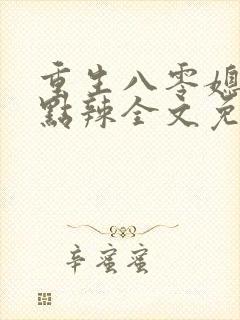 重生八零媳
點辣全文免
辛蜜蜜